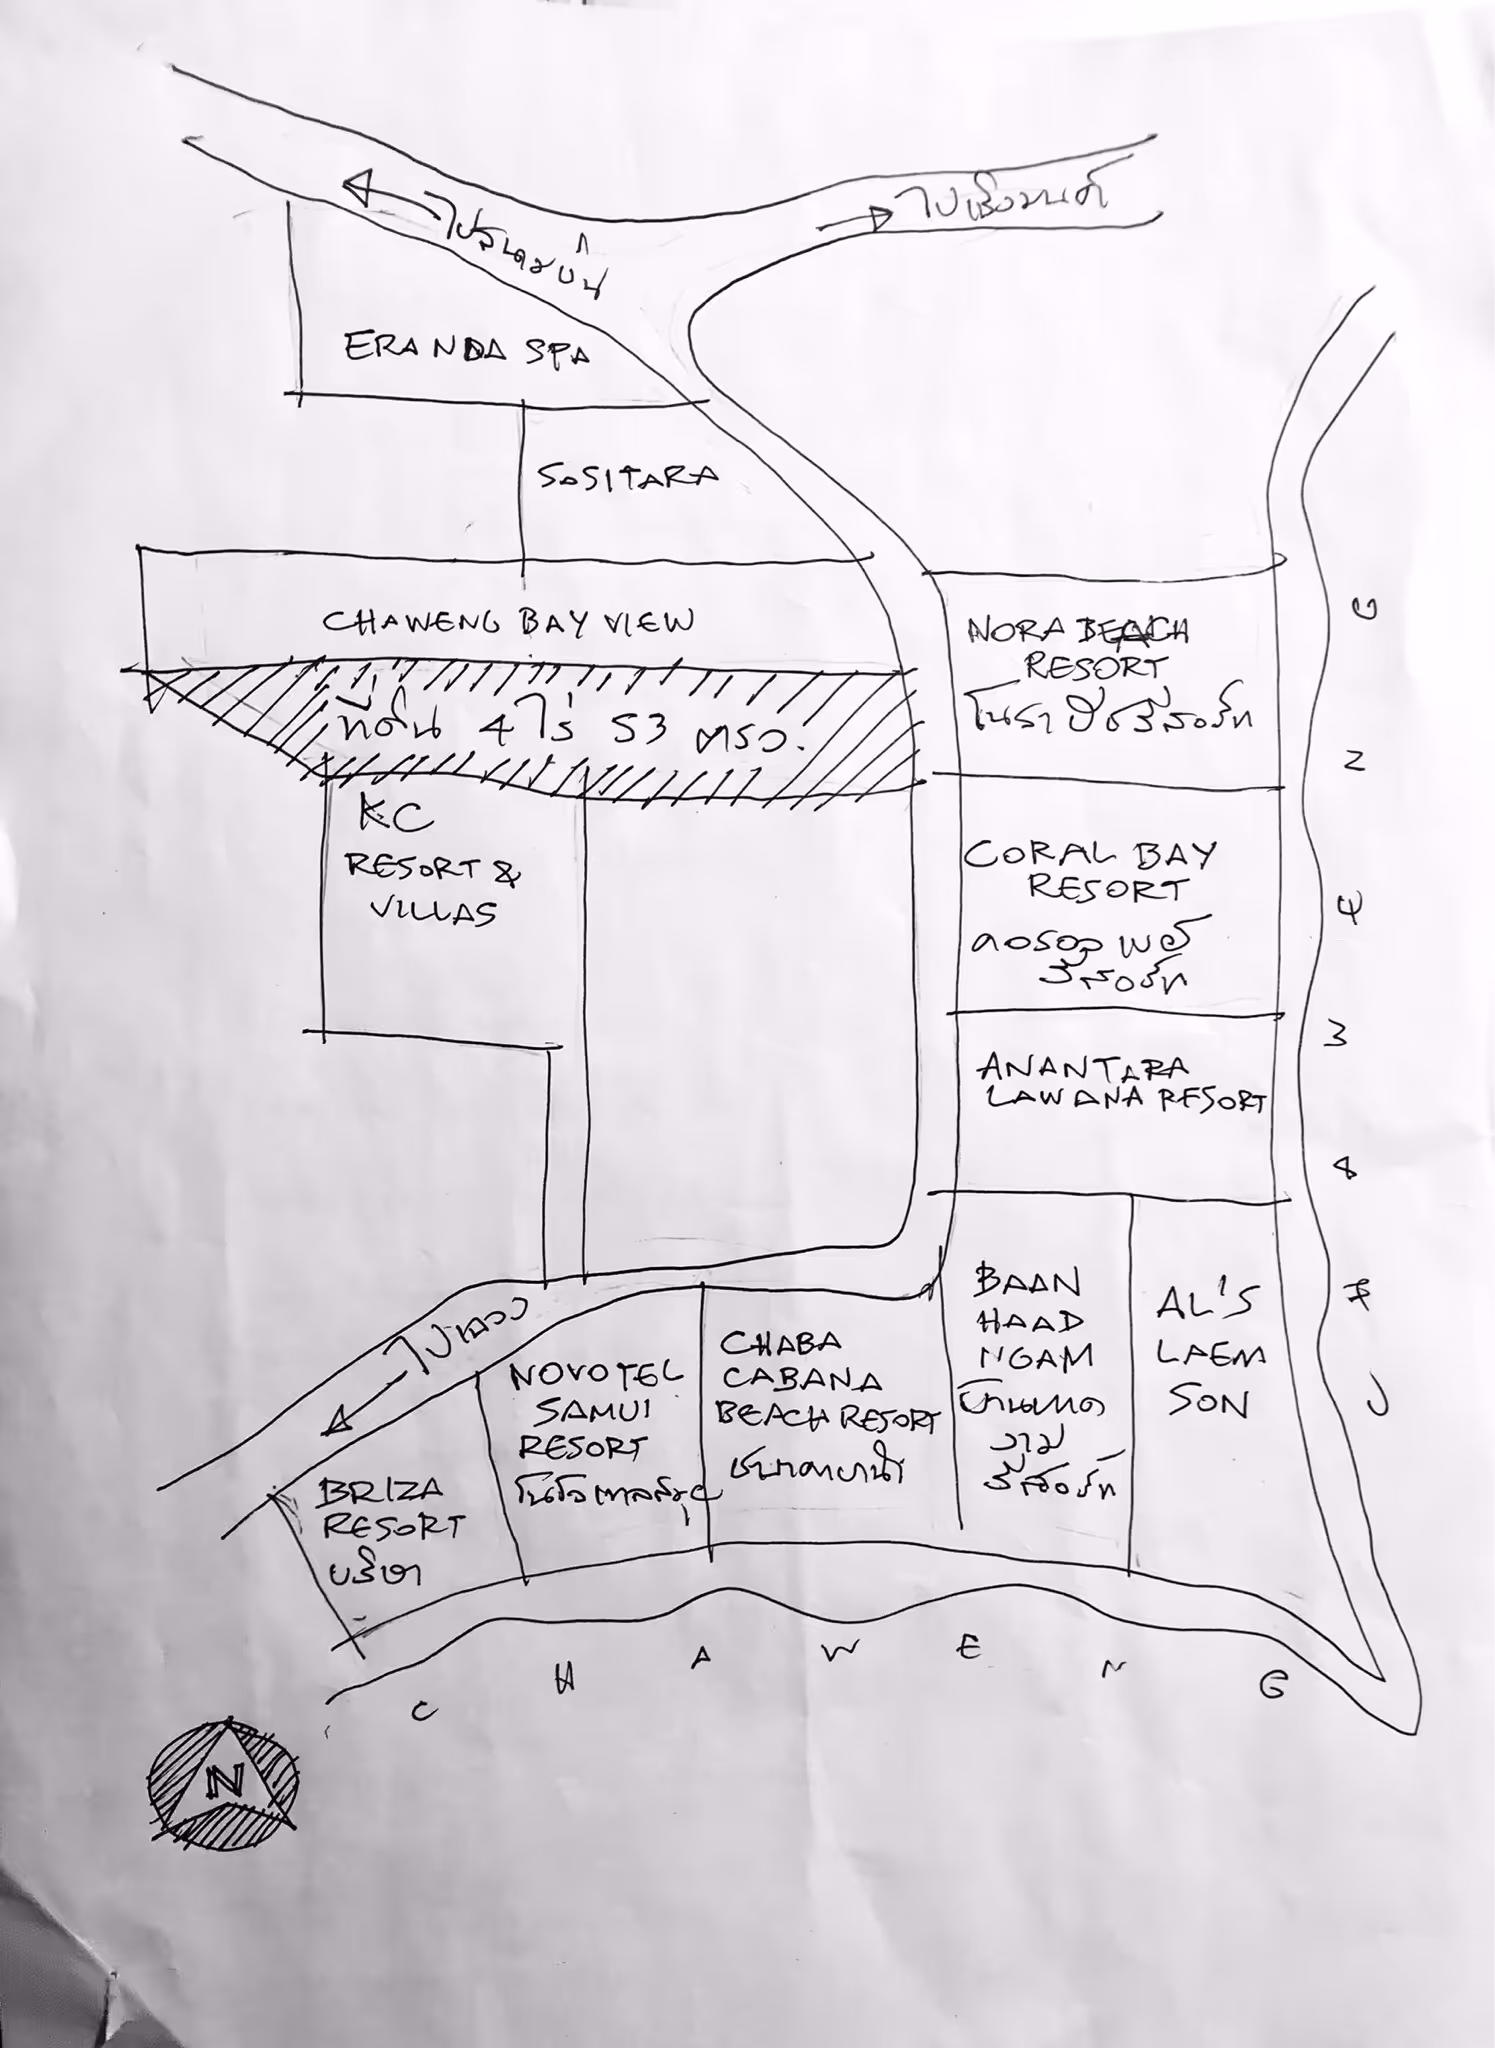 ไปสนามบิน
ไปเชิงมนต์
ERANDA SPA
SASITARA
CHAWENG BAY VIEW
ที่ดิน 4 ไร่ 53 ตรว.
NORA BEACH
RESORT
โนรา บีชรีสอร์ท
KC
RESORT &
VILLAS
CORAL BAY
RESORT
คอรอล เบย์
รีสอร์ท
ANANTARA
LAWANA RESORT
BAAN
HAAD
NGAM
บ้านหาด
งาม
รีสอร์ท
AL'S
LAEM
SON
ไปเฉวง
NOVOTEL
SAMUI
RESORT
โนโวเทลสมุย
CHABA
CABANA
BEACH RESORT
ชบาคาบาน่า
BRIZA
RESORT
บริซา
CHAWENG
CHAWENG
N